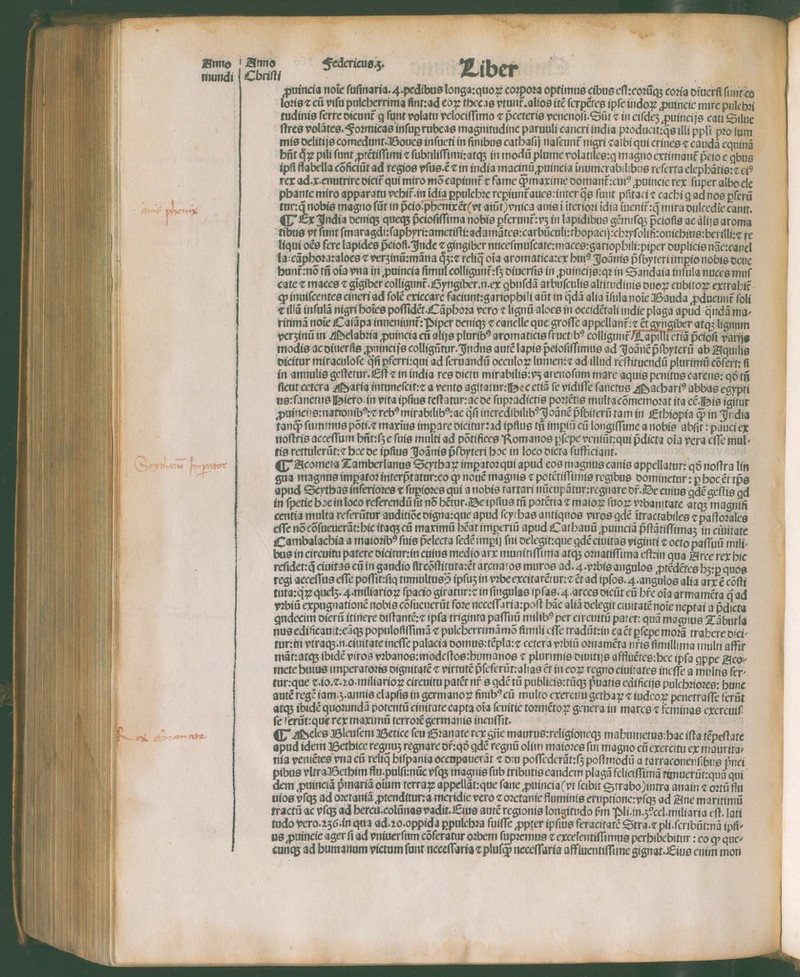 Anno mundi
Anno Christi
Federicus.3.
Liber
ꝓuincia noīe susinaria. 4.pedibus longa:quoꝝ corpora optimus cibus est:eorūqꝫ coria diuersi sunt co
loris ⁊ cū visu pulcherrima sint:ad eoꝝ thecas vtunt̄.alios itē serpētes ipse indoꝝ ꝓuincie mire pulchri
tudinis ferre dicunt̄ q sunt volatu velocissimo ⁊ p̄ceteris venenosi.Sūt ⁊ in eisdeꝫ ꝓuincijs cati Silue
stres volātes.Formicas insuꝑ rubeas magnitudine paruuli cancri india producit:qs illi ppli pro sum
mis delitijs comedunt.Boues insueti in finibus cathasij nascunt̄ nigri ⁊ albi qui crines ⁊ caudā equinā
hn̄t qꝝ pili sunt p̄tētissimi ⁊ subtilissimi:atqꝫ in modū plume volatiles:q magno extimant̄ p̄cio e qbus
ipsi flabella cōficiūt ad regios vsus.ē ⁊ in india macinū ꝓuincia innumerabilibus referta elephātis:⁊ ei⁹
rex ad.x.enutrire dicit̄ qui miro mō capiunt̄ ⁊ fame qꝫmaxime domant̄:cui⁹ ꝓuincie rex super albo ele
phante miro apparatu vehit̄.in īdia ppulchre repiunt̄ aues:inter qs sunt psitaci ⁊ cachi q ad nos pferū
tur:q̄ nobis magno sūt in p̄cio.phenix ēt(vt aiūt)vnica auis ī īteriori īdia īuenit̄:q̄ mira dulcedīe canit.
anis phenix
¶ Ex India deniqꝫ queqꝫ p̄ciosissima nobis pferunt̄:vꝫ in lapidibus gēmisqꝫ p̄ciosis ac alijs aroma
tibus vt sunt smaragdi:saphyri:ametisti:adamātes:carbūculi:thopacij:chrysoliti:onichius:berilli:⁊ re
liqui oēs fere lapides p̄ciosi.Inde ⁊ gingiber nuces muscate:maces:gariophili:piper duplicis nāe:canel
la:cāphora:aloes ⁊ verzinū:māna qꝫ:⁊ reliq̄ oīa aromatica:ex hui⁹ Joānis p̄sbyteri impio nobis deue
hunt̄:nō tn̄ oīa vna in ꝓuincia simul colligunt̄:sꝫ diuersis in ꝓuincijs:qꝛ in Sandaia insula nuces mus
cate ⁊ maces ⁊ gīgiber colligunt̄.Gyngiber.n.ex qbusdā arbusculis altitudinis duoꝝ cubitoꝝ extrahit̄
qꝫ inuiscentes cineri ad solē exiccare faciunt:gariophili aūt in qdā alia īsula noīe Bauda ꝓducunt̄ soli
⁊ illā insulā nigri hoīes possidēt.Cāphora vero ⁊ lignū aloes in occidētali indie plaga apud q̄ndā ma-
ritimā noīe Caiāpa inueniunt̄:Piper deniqꝫ ⁊ canelle que grosse appellant̄:⁊ ēt gyngiber atqꝫ lignum
verzinū in Melabria ꝓuincia cū alijs pluribꝫ aromaticis fructibꝫ colligunt̄.Lapilli etiā p̄ciosi varijs
modis ac diuersis ꝓuincijs colligūtur.Indus autē lapis p̄ciosissimus ad Joānē p̄sbyterū ab Aquilis
dicitur miraculose qn̄qꝫ pferri:qui ad seruandū oculoꝝ lumen:⁊ ad illud restituendū plurimū cōfert: si
in annulis gestetur.Est ⁊ in india res dictu mirabilis:vꝫ arenosum mare aquis penitus carens: qd tn̄
sicut cetera Maria intumescit:⁊ a vento agitatur:Hoc etiā se vidisse sanctus Machari⁹ abbas egypti
us:sanctus Hiero.in vita ipsius testatur:ac de supradictis portētis multa cōmemorat ita eē.His igitur
ꝓuincijs:nationibꝫ:⁊ rebꝫ mirabilibꝫ:ac qsi incredibilibꝫ Joānē p̄sbiterū tam in Ethiopia qꝫ in India
tanqꝫ summus pōti.⁊ maxius impare dicitur:ad ipsius tn̄ impiū cū longissime a nobis absit : pauci ex
nostris accessum hn̄t:sꝫ e suis multi ad pōtifices Romanos ꝑsepe veniūt:qui p̄dicta oīa vera esse mul-
tis rettulerūt:⁊ hec de ipsius Joānis p̄sbyteri hoc in loco dicta sufficiant.
Seytharum Imperator
¶ Acometa Tamberlanus Scythaꝝ imperator qui apud eos magnus canis appellatur: qd nostra lin
gua magnus imperator interp̄tatur:eo qꝫ nouē magnis ⁊ potētissimis regibus dominetur : p hoc ēt tp̄s
apud Scythas inferiores ⁊ supiores qui a nobis tartari nūcupātur:regnare dr̄.De cuius qdē gestis qd
in specie hoc in loco referendū sit nō hētur.De ipsius tn̄ potētia ⁊ maioꝝ suoꝝ vrbanitate atqꝫ magnifi
centia multa referūtur auditiōe digna:que apud scythas antiquos viros qdē ītractabiles ⁊ pastorales
esse nō cōsueuerāt:hic itaqꝫ cū maximū hēat imperiū apud Cathauū ꝓuinciā p̄stātissimaꝫ in ciuitate
Cambalachia a maioribꝫ suis p̄electa sedē imperij sui delegit:que qdē ciuitas viginti ⁊ octo passuū mili-
bus in circuitu patere dicitur:in cuius medio arx munitissima atqꝫ ornatissima est:in qua Arce rex hic
residet:q̄ ciuitas cū in gaudio sit cōstituta:ēt arcuatos muros ad.4.vrbis angulos ꝓtēdētes hꝫ:p quos
regi accessus esse possit:siqꝫ tumultus ī ipsuꝫ in vrbe excitarētur:⁊ ēt ad ipsos.4.angulos alia arx ē cōsti
tuta:qꝝ quelꝫ.4.miliarioꝝ spacio giratur:⁊ in singulas ipsas.4.arces dicūt cū hr̄e oīa armamēta q̄ ad
vrbiū expugnationē nobis cōsueuerūt fore necessaria:post hāc aliā delegit ciuitatē noīe neptai a p̄dicta
qndecim dierū itinere distantē:⁊ ipsa triginta passuū milibꝫ per circuitū patet: quā magnus Tāburla
nus edificauit:eāqꝫ populosissimā ⁊ pulcherrimā simili esse tradūt:in ea ēt ꝑsepe morā trahere dici-
tur:in vtraqꝫ.n.ciuitate inesse palacia domus:tēpla:⁊ cetera vrbiū ornamēta nr̄is simillima multi affir
māt:atqꝫ ibidē viros vrbanos:modestos:humanos ⁊ plurimis diuitijs affluētes:hec ipsa qppe Aco-
mete huius imperatoris dignitatē ⁊ virtutē p̄seferūt:alias ēt in eoꝝ regno ciuitates inesse a multis fer-
tur:que ⁊.10.⁊.20.miliarioꝝ circuitu patēt nr̄is qdē tū publicis:tūqꝫ p̄uatis edificijs pulchriores: hunc
autē regē iam.3.annis elapsis in germanoꝝ finibꝫ cū multo exercitu gethaꝝ ⁊ iudeoꝝ penetrasse ferūt
atqꝫ ibidē quorundā potentū ciuitate capta oīa seuitie tormētoꝝ genera in mares ⁊ feminas exercuis
se ferūt:que rex maximū terrorē germanis incussit.
Rex Granate
¶ Meles Bleuseni Betice seu Granate rex gn̄e maurus:religioneqꝫ mahumetus:hac ista tēpestate
apud idem Bethice regnuꝫ regnare dr̄:qd qdē regnū olim maiores sui magno cū exercitu ex maurita-
nia veniētes vna cū reliq̄ hispania occupauerāt ⁊ diu possederāt:sꝫ postmodū a tarraconensibus p̄nci
pibus vltra Bethim flu.pulsi:nūc vsqꝫ magnis sub tributis eandem plagā felicissimā tenuerūt:quā qui
dem ꝓuinciā p̄mariā oium terraꝝ appellāt:que sane ꝓuincia(vt scibit Strabo)intra anain ⁊ ortū flu
uios vsqꝫ ad oretaniā ꝓtenditur:a meridie vero ⁊ oretanie fluminis eruptione:vsqꝫ ad Ane maritimū
tractū ac vsqꝫ ad hercu.colūnas vadit.Eius autē regionis longitudo fm̄ Pli.in.3⁰.ccl.miliaria est.lati
tudo vero.236.in qua ad.20.oppida ppulchra fuisse ꝓpter ipsius feracitatē Stra.⁊ pli.scribūt:nā ipsi-
us ꝓuincie ager si ad vniuersum cōferatur orbem supremus ⁊ excelentissimus perhibebitur : eo qꝫ que-
cunqꝫ ad humanum victum sunt necessaria ⁊ plusqꝫ necessaria affluentissime gignat.Eius enim mon